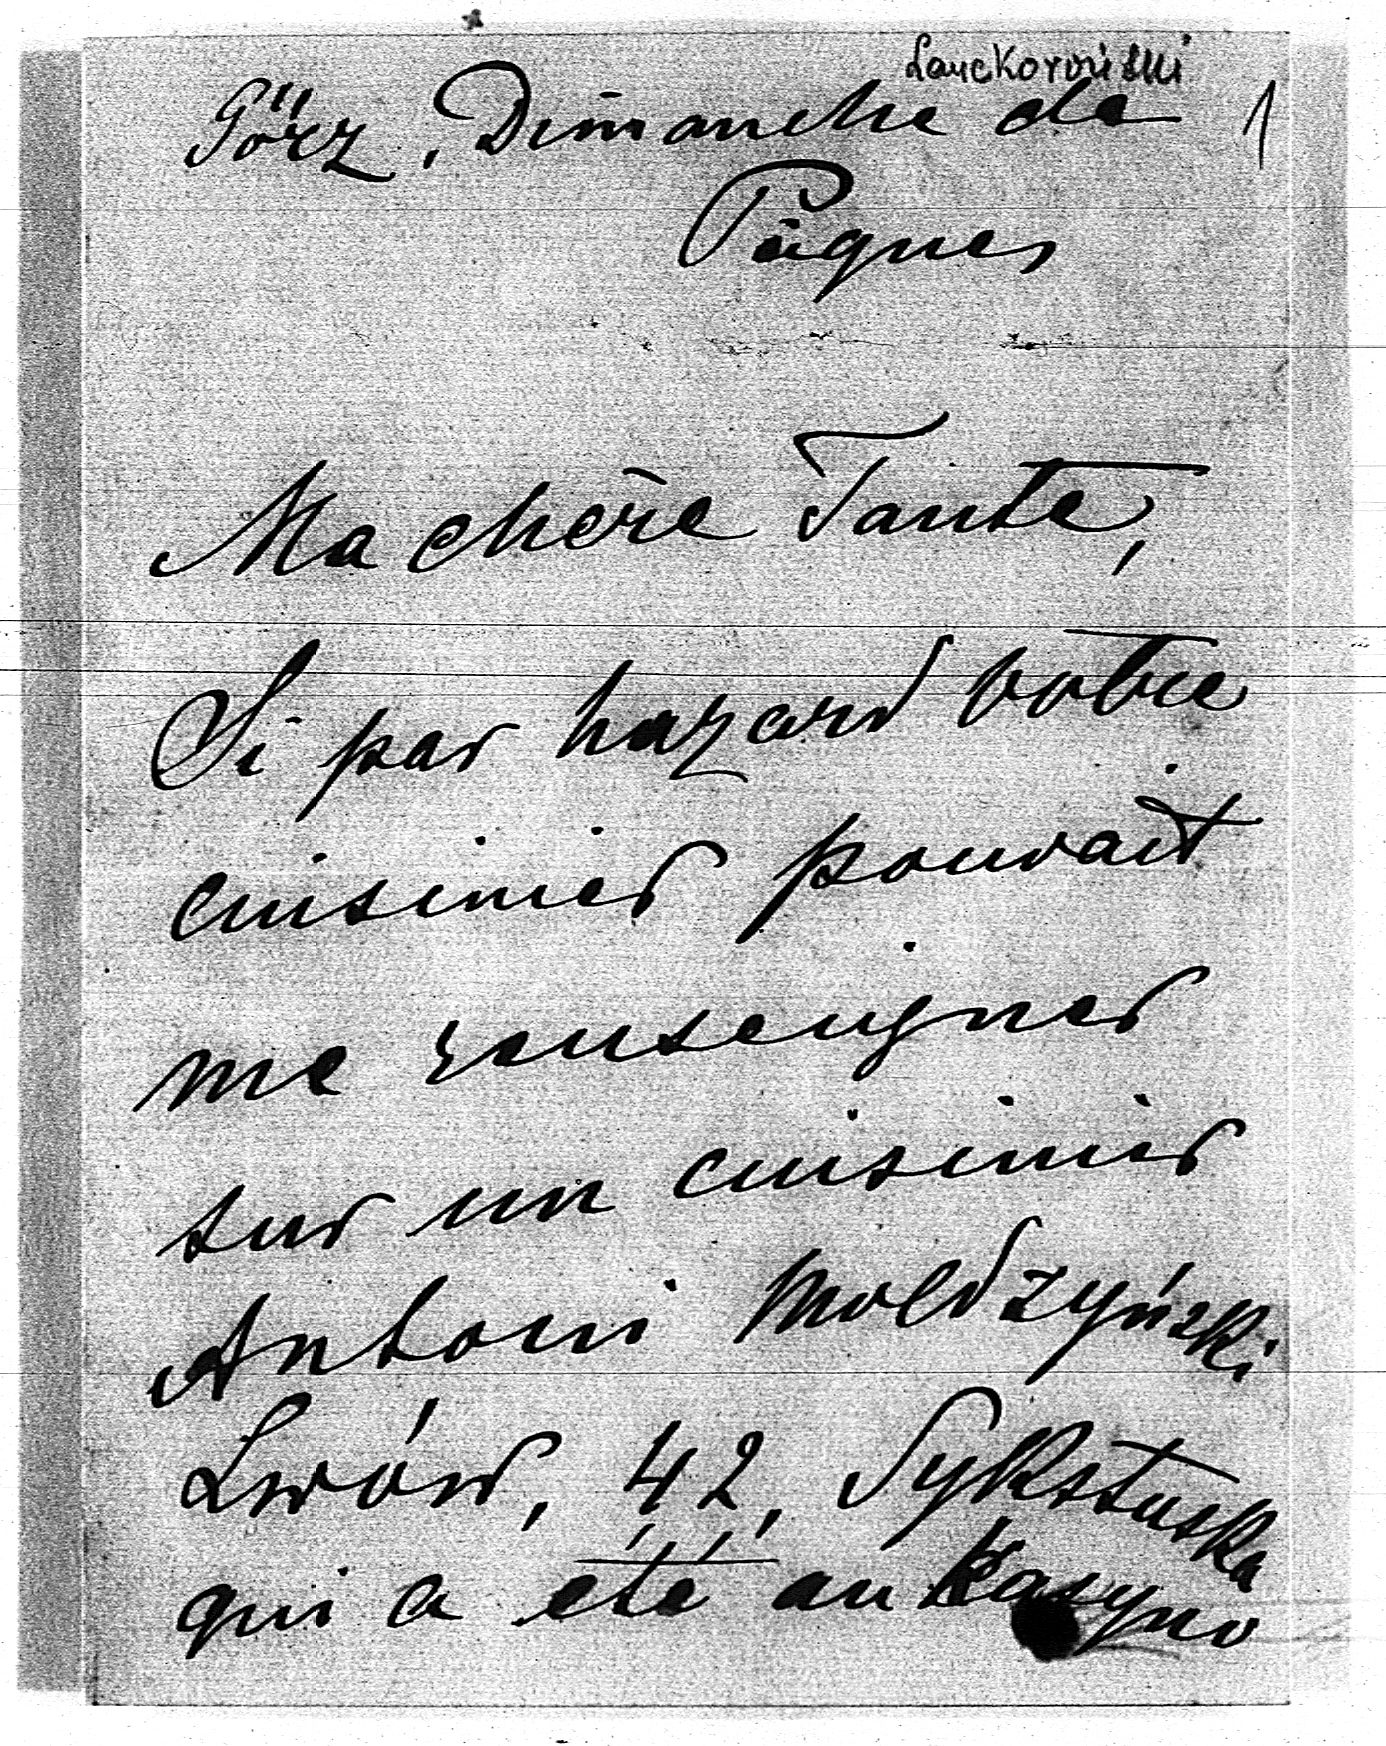 Lanckoroński
Görz, Dimanche de 1
Pâques
Ma chère Tante,
Si par hazard votre
cuisinier pouvait
me renseigner
sur un cuisinier
Antoni Moldzyński
Lwów, 42, Sykstuska
qui a été au Kasyno